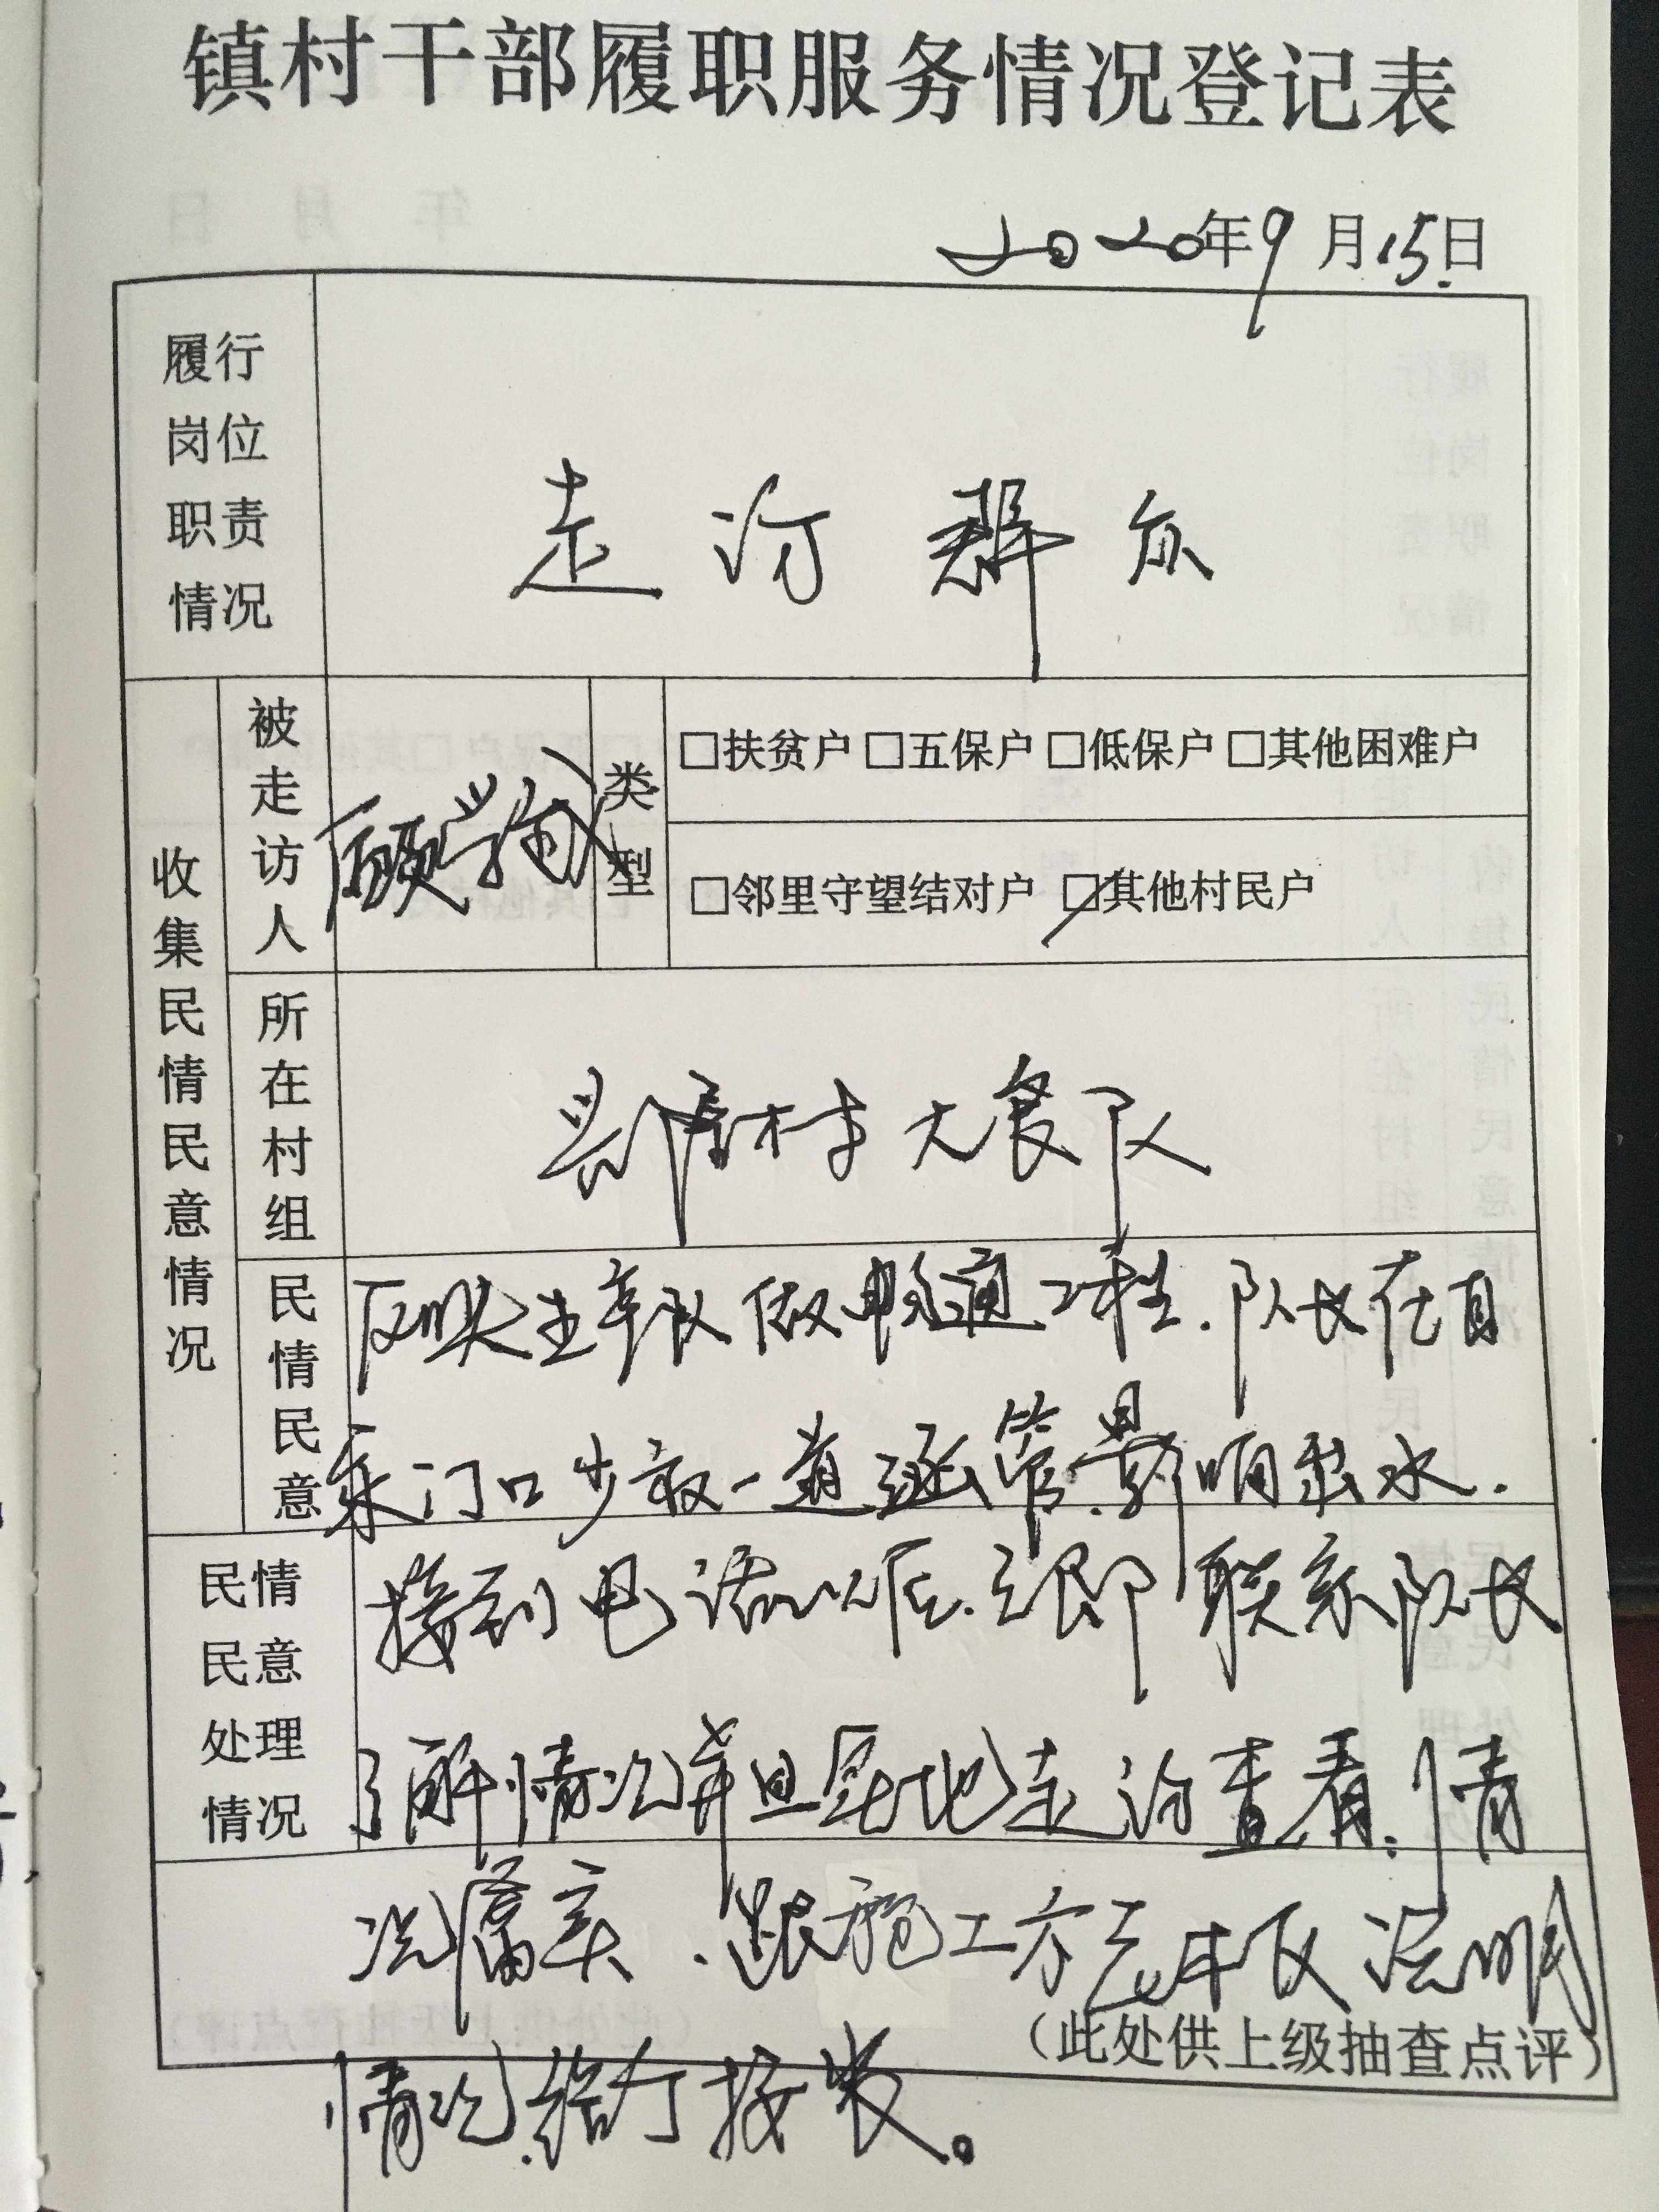 镇村干部履职服务情况登记表
2020年9月15日
履行岗位职责情况
走访群众
收集民情民意情况
被走访人
顾学
类型
□扶贫户 □五保户 □低保户 □其他困难户
□邻里守望结对户 □其他村民户
所在村组
村大食队
民情民意
反映生产队做畅通工程.队长在自
家门口少放一道涵管.影响出水.
民情民意处理情况
接到电话以后.立即联系队长
了解情况并且实地走访查看.情
况属实.跟施工方老板说明
情况.给予接装。
(此处供上级抽查点评)